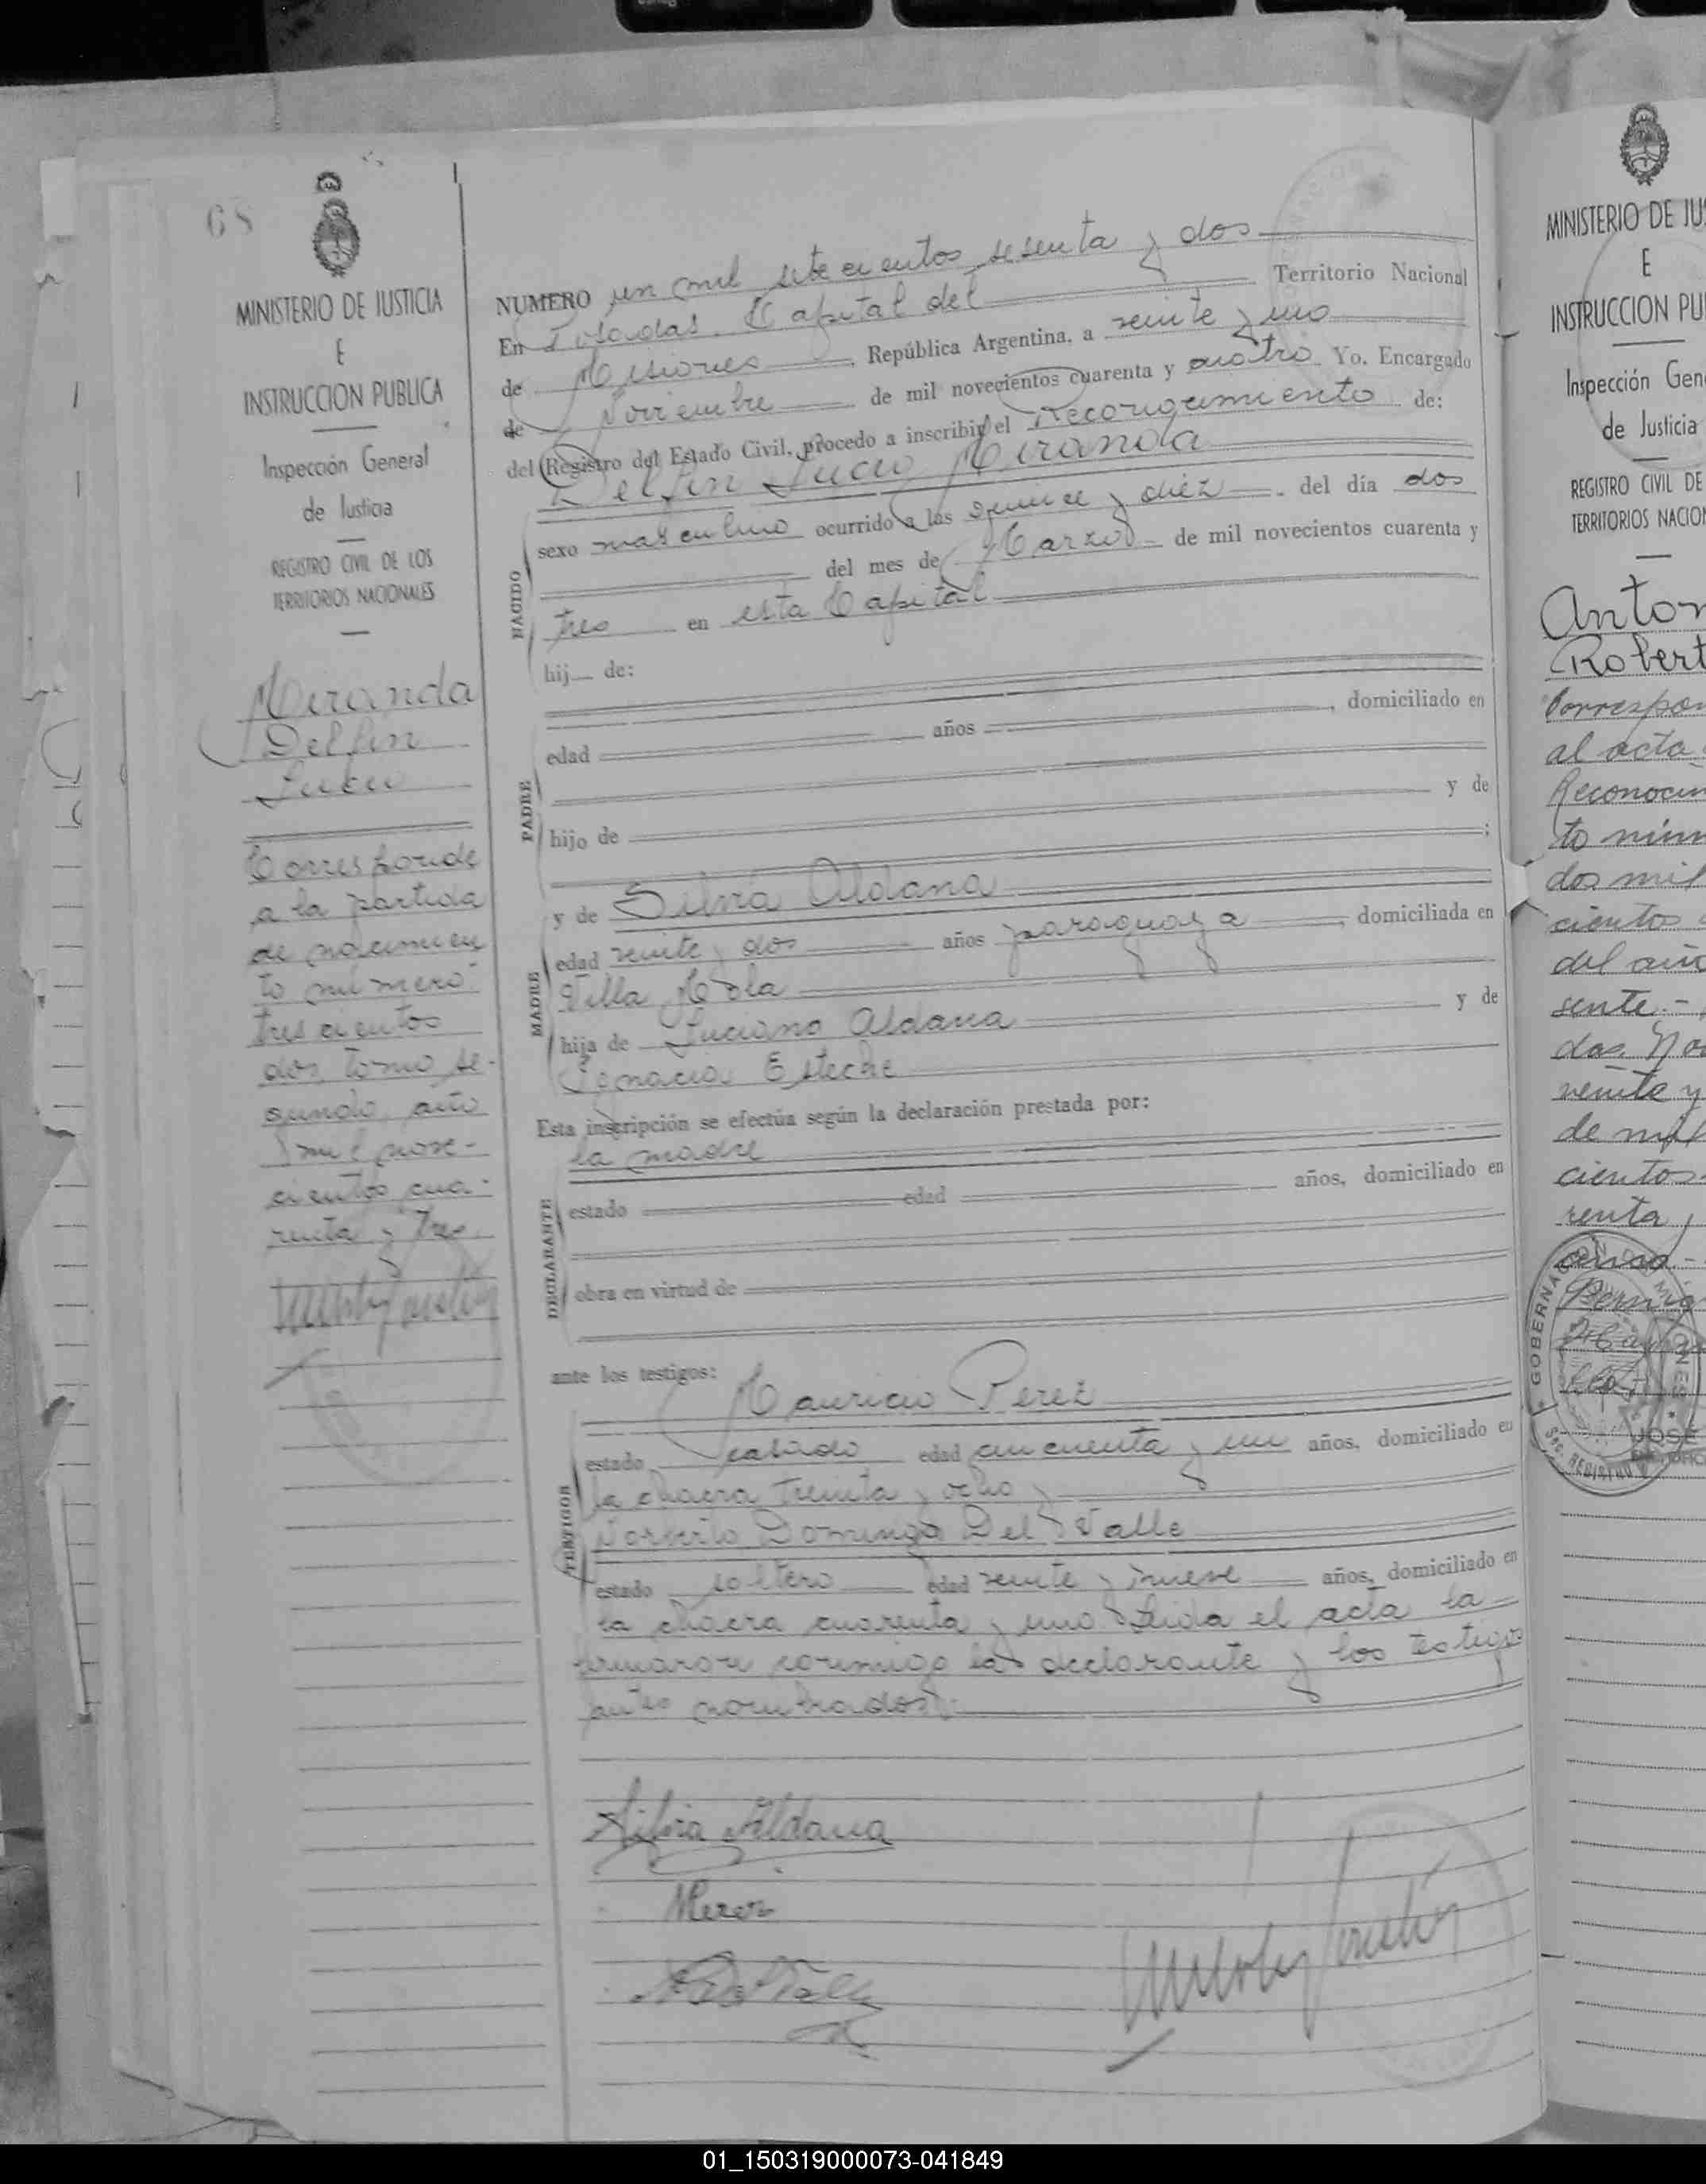 68
MINISTERIO DE JUSTICIA
E
INSTRUCCION PUBLICA
Inspección General
de Justicia
REGISTRO CIVIL DE LOS
TERRITORIOS NACIONALES
Miranda
Delfin
Lucio
Corresponde
a la partida
de nacimien
to número:
tres cientos
dos, tomo se-
gundo, año
mil nove-
cientos cua-
renta y tres.
NUMERO un mil sete cientos sesenta y dos
En Posadas, Capital del Territorio Nacional
de Misiones, República Argentina, a veinte y uno
de Noviembre de mil novecientos cuarenta y cuatro Yo, Encargado
del Registro del Estado Civil, procedo a inscribir el Reconocimiento de:
Delfin Lucio Miranda
NACIDO
sexo masculino ocurrido a las quince y diez del día dos
del mes de Marzo de mil novecientos cuarenta y
tres en esta Capital
hij de:
PADRE
edad años , domiciliado en
hijo de y de
;
MADRE
y de Silvia Aldana
edad veinte y dos años paraguaya, domiciliada en
Villa Mola
hija de Luciano Aldana y de
Ignacia Esteche
Esta inscripción se efectúa según la declaración prestada por:
la madre
DECLARANTE
estado edad años, domiciliado en
obra en virtud de
ante los testigos:
Mauricio Perez
TESTIGOS
estado casado edad cincuenta y un años, domiciliado en
la chacra treinta y ocho y
Norberto Domingo Del Valle
estado soltero edad veinte y nueve años, domiciliado en
la chacra cuarenta y uno Leida el acta la
firmaron conmigo la declarante y los testigos
antes nombrados:
Silvia Aldana
MINISTERIO DE JUS
E
INSTRUCCION PU
Inspección Gen
de Justicia
REGISTRO CIVIL DE
TERRITORIOS NACION
Anton
Robert
Correspon
al acta
Reconocim
to núm
dos mil
cientos
del año
sente.-
dos No
veinte y
de mil
cientos
renta y
GOBERNACION
JOSE
01_150319000073-041849